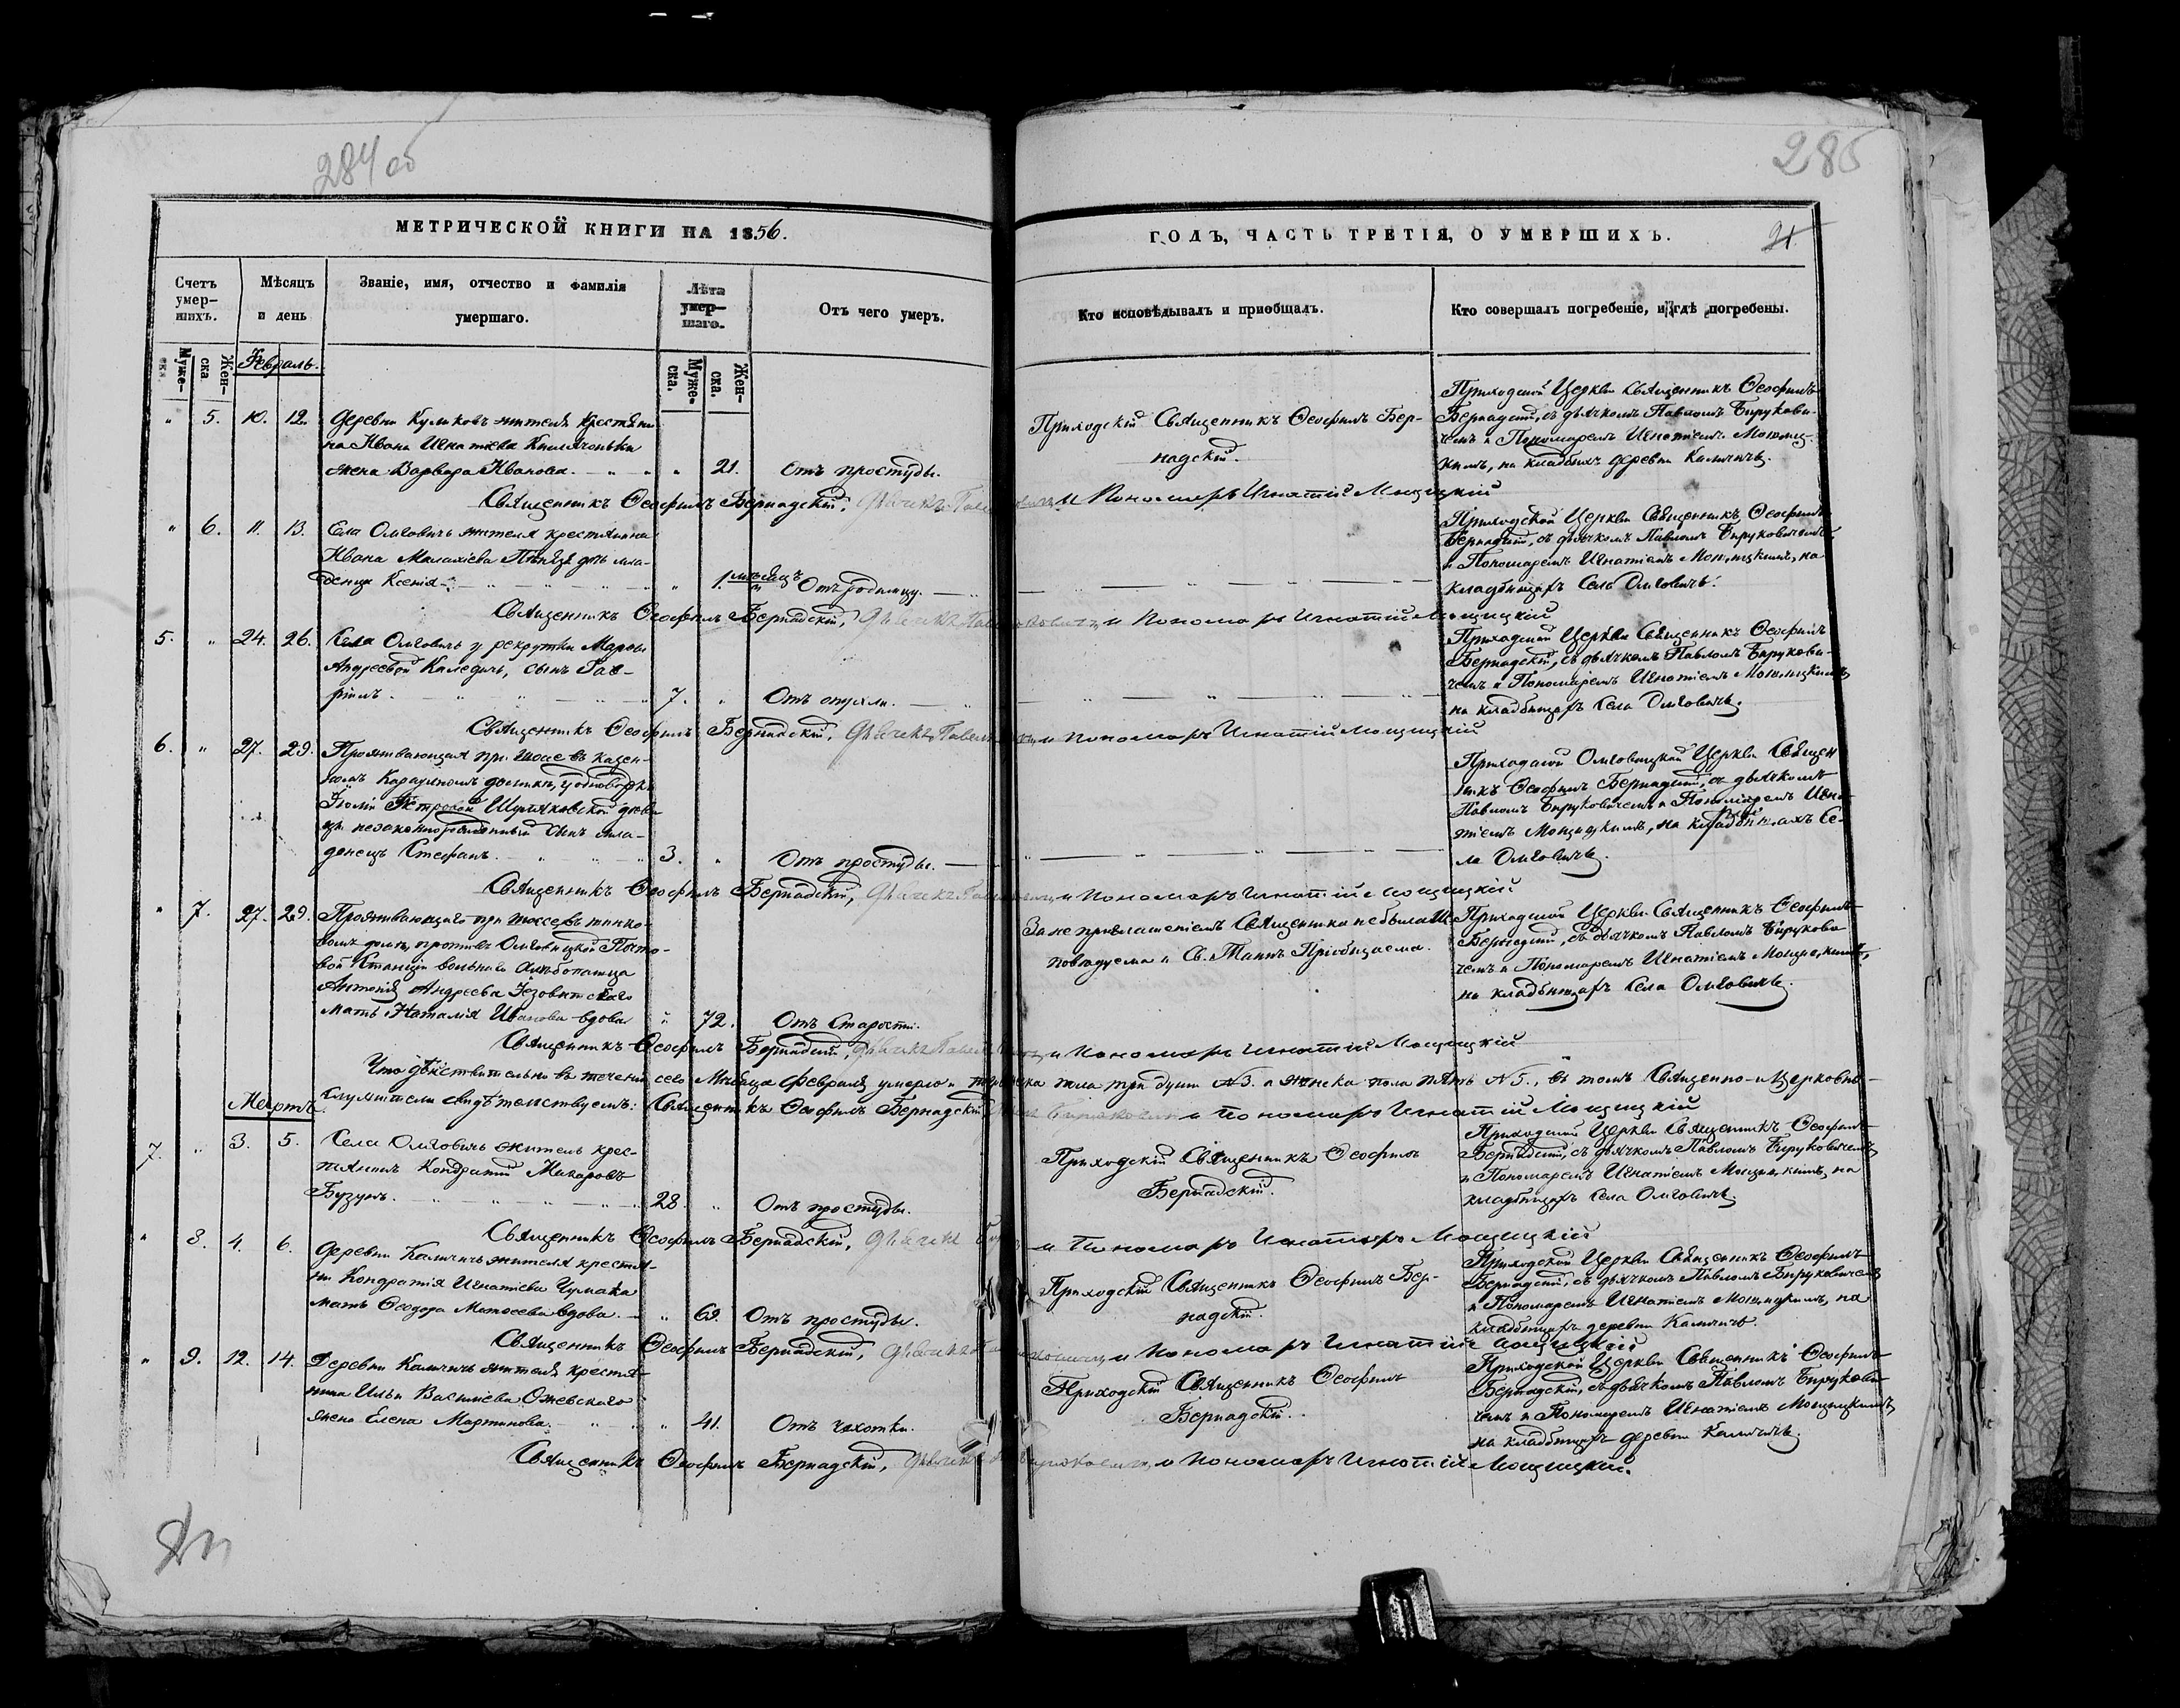 284 об
285
МЕТРИЧЕСКОЙ КНИГИ НА 1856.
ГОДЪ, ЧАСТЬ ТРЕТІЯ, О УМЕРШИХЪ.
21
Счетъ умер-шихъ.
Мѣсяцъ и день
Званіе, имя, отчество и фамилія умершаго.
Лѣта умер-шаго.
Отъ чего умеръ.
Кто исповѣдывалъ и пріобщалъ.
Кто совершалъ погребеніе, и гдѣ погребены.
Муже-ска.
Жен-ска
Февраль.
Муже-ска.
Жен-ска.
" 5. 10. 12. Деревни жителя крестьяни-
на Ивана Игнатіева
жена Варвара Иванова. " 21. Отъ простуды.
Приходскій Священникъ Ѳеофилъ Бер-
надскій.
Приходской Церкви Священникъ Ѳеофилъ
Бернадскій, съ дьячкомъ Павломъ Бирукови-
чемъ и Пономаремъ Игнатіемъ Мощиц-
кимъ, на кладбищѣ деревни
Священникъ Ѳеофилъ Бернадскій, и Пономаръ Игнатій Мощицкій
" 6. 11. 13. Села Олыговичъ жителя крестьянина
Ивана Малахіева дочь мла-
деница Ксенія " 1. мѣсяцъ Отъ родимцу.
Приходской Церкви Священникъ Ѳеофилъ
Бернадскій, съ дьячкомъ Павломъ Бируковичемъ
и Пономаремъ Игнатіемъ Мощицкимъ, на
кладбищахъ Села Олыговичъ.
Священникъ Ѳеофилъ Бернадскій, и Пономаръ Игнатій Мощицкій
5. " 24. 26. Села Олыговичъ у рекрутки Марѳы
Андреевой сынъ Гав-
ріилъ. 7. " Отъ опухли.
Приходской Церкви Священникъ Ѳеофилъ
Бернадскій, съ дьячкомъ Павломъ Бирукови-
чемъ и Пономаремъ Игнатіемъ Мощицкимъ,
на кладбищахъ Села Олыговичъ.
Священникъ Ѳеофилъ Бернадскій, и Пономаръ Игнатій Мощицкій
6. " 27. 29. Проживающая при шоссе въ казен-
номъ Караульномъ домикѣ, у однодворки
Петровой
незаконнорожденный сынъ мла-
денецъ Стефанъ. 3. " Отъ простуды.
Приходской Олыговицкой Церкви Священ-
никъ Ѳеофилъ Бернадскій, съ дьячкомъ
Павломъ Бируковичемъ и Пономаремъ Игна-
тіемъ Мощицкимъ, на кладбищахъ Се-
ла Олыговичъ.
Священникъ Ѳеофилъ Бернадскій, и Пономаръ Игнатій Мощицкій
" 7. 27. 29. Проживающаго при шоссе въ
домѣ, противъ Олыговицкой Почто-
вой Станціи вольнаго хлѣбопашца
Антонія Андреева
мать Наталія Иванова вдова " 72. Отъ Старости.
За не приглашеніемъ Священника не была Ис-
повѣдуема и Св. Таинъ Пріобщаема.
Приходской Церкви Священникъ Ѳеофилъ
Бернадскій, съ дьячкомъ Павломъ Бирукови-
чемъ и Пономаремъ Игнатіемъ Мощицкимъ,
на кладбищахъ Села Олыговичъ.
Священникъ Ѳеофилъ Бернадскій, и Пономаръ Игнатій Мощицкій
Что дѣйствительно въ теченіи сего Мѣсяца Февраля умерло пола три души №3. и женска пола пять №5., въ томъ Священно-Церковно-
служители свидѣтельствуемъ: Священникъ Ѳеофилъ Бернадскій и Пономаръ Игнатій Мощицкій
Мартъ.
7. " 3. 5. Села Олыговичъ житель крес-
тьянинъ Кондратій Макаровъ
Бузунъ. 28. " Отъ простуды.
Приходскій Священникъ Ѳеофилъ
Бернадскій.
Приходской Церкви Священникъ Ѳеофилъ
Бернадскій, съ дьячкомъ Павломъ Бируковичемъ,
и Пономаремъ Игнатіемъ Мощицкимъ, на
кладбищахъ Села Олыговичъ.
Священникъ Ѳеофилъ Бернадскій, и Пономаръ Игнатій Мощицкій
" 8. 4. 6. Деревни жителя крестья-
ни Кондратія Игнатіева Чумака
мать Ѳеодора Матѳеева вдова " 69. Отъ простуды.
Приходскій Священникъ Ѳеофилъ Бер-
надскій.
Приходской Церкви Священникъ Ѳеофилъ
Бернадскій, съ дьячкомъ Павломъ Бируковичемъ
и Пономаремъ Игнатіемъ Мощицкимъ, на
кладбищахъ деревни
Священникъ Ѳеофилъ Бернадскій, и Пономаръ Игнатій Мощицкій
" 9. 12. 14. Деревни жителя крестья-
нина Ильи Василіева Ожевскаго
жена Елена Мартинова. " 41. Отъ чахотки.
Приходскій Священникъ Ѳеофилъ
Бернадскій.
Приходской Церкви Священникъ Ѳеофилъ
Бернадскій, съ дьячкомъ Павломъ Бирукови-
чемъ и Пономаремъ Игнатіемъ Мощицкимъ,
на кладбищахъ деревни
Священникъ Ѳеофилъ Бернадскій, и Пономаръ Игнатій Мощицкій.